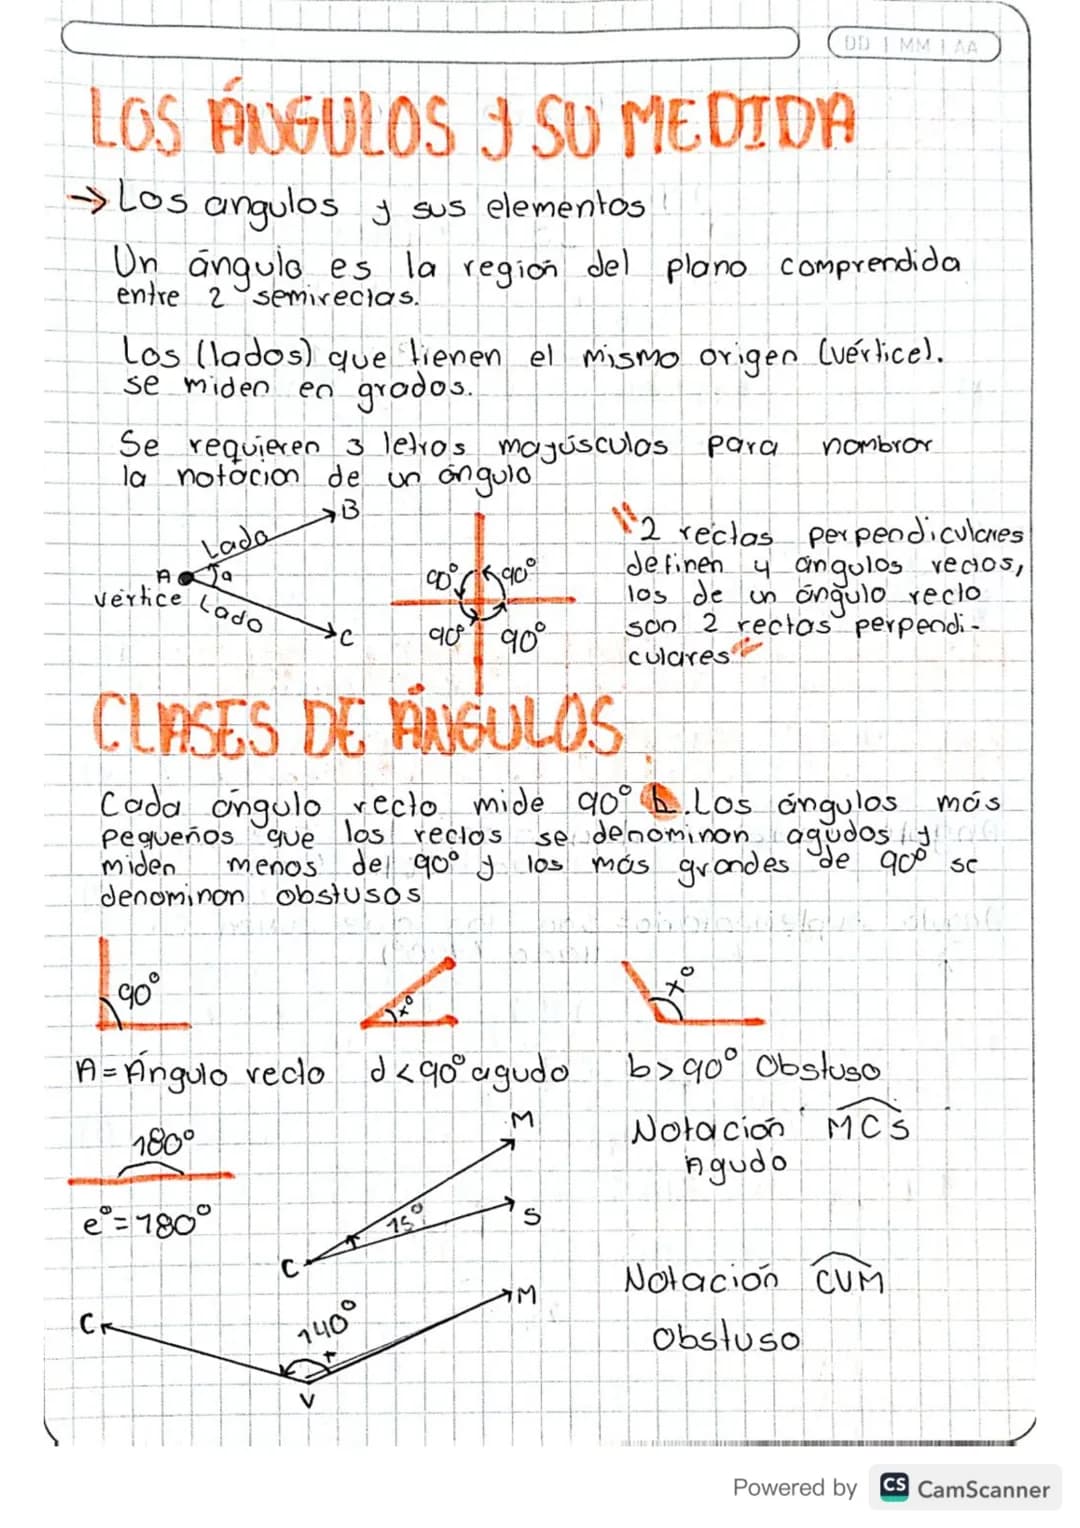 DD | MM | AA
LOS ÁNGULOS y SU MEDIDA
→ Los angulos y sus elementos
Un ángulo es la región del plano comprendida
entre 2 semirectas.
Los (lados) que tienen el mismo origen (vértice).
se miden en grados.
Se requieren 3 letras mayúsculas para nombrar
la notación de un ángulo
B
Lado
A
a
vértice
Lado
C
90° 90°
90° 90°
"2 rectas perpendiculares
definen 4 ángulos rectos,
los de un ángulo recto
son 2 rectas perpendi-
culares"
CLASES DE ÁNGULOS
Cada ángulo recto mide 90° b. Los ángulos más
pequeños que los rectos se denominan agudos y
miden menos del 90° y los más grandes de 90° se
denominan obstusos
90°
x°
x°
A = Ángulo recto d < 90° agudo b > 90° Obstuso
180°
e° = 180°
M
15°
S
C
Notación MCS
Agudo
C
140°
M
V
Notación CVM
Obstuso
Powered by CS CamScanner